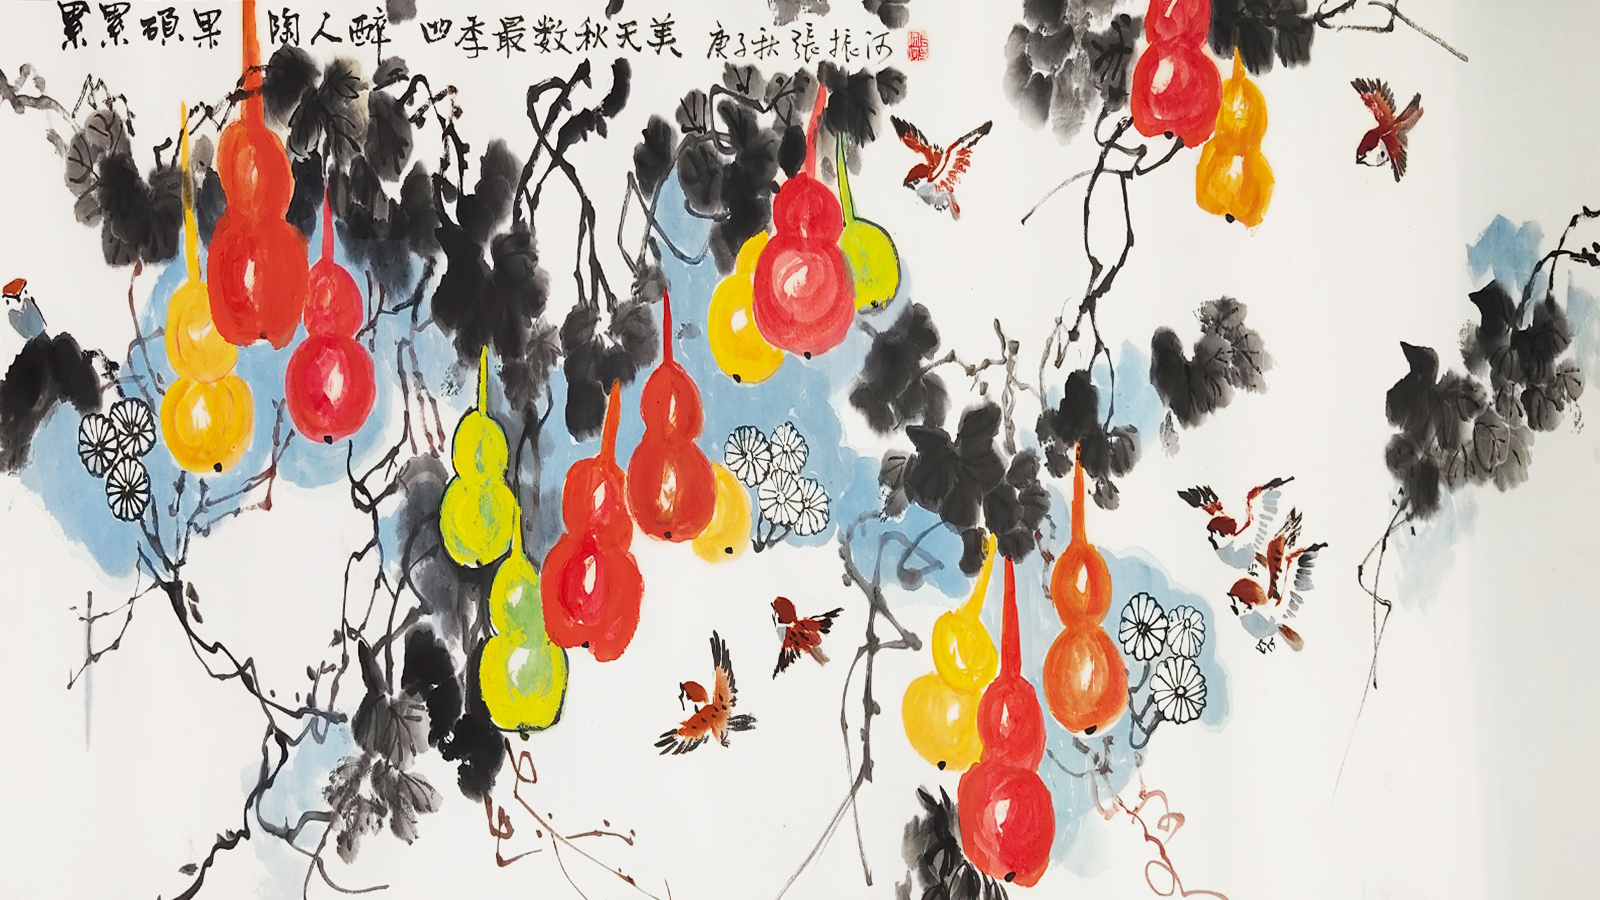 累累碩果 陶人醉 四季最数秋天美 庚子秋 張振河